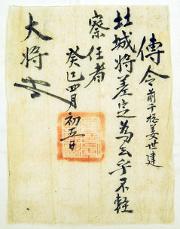 傳令 前千摠姜世建
杜城將差定爲去乎不輕
察任者
癸巳四月初五日
大將